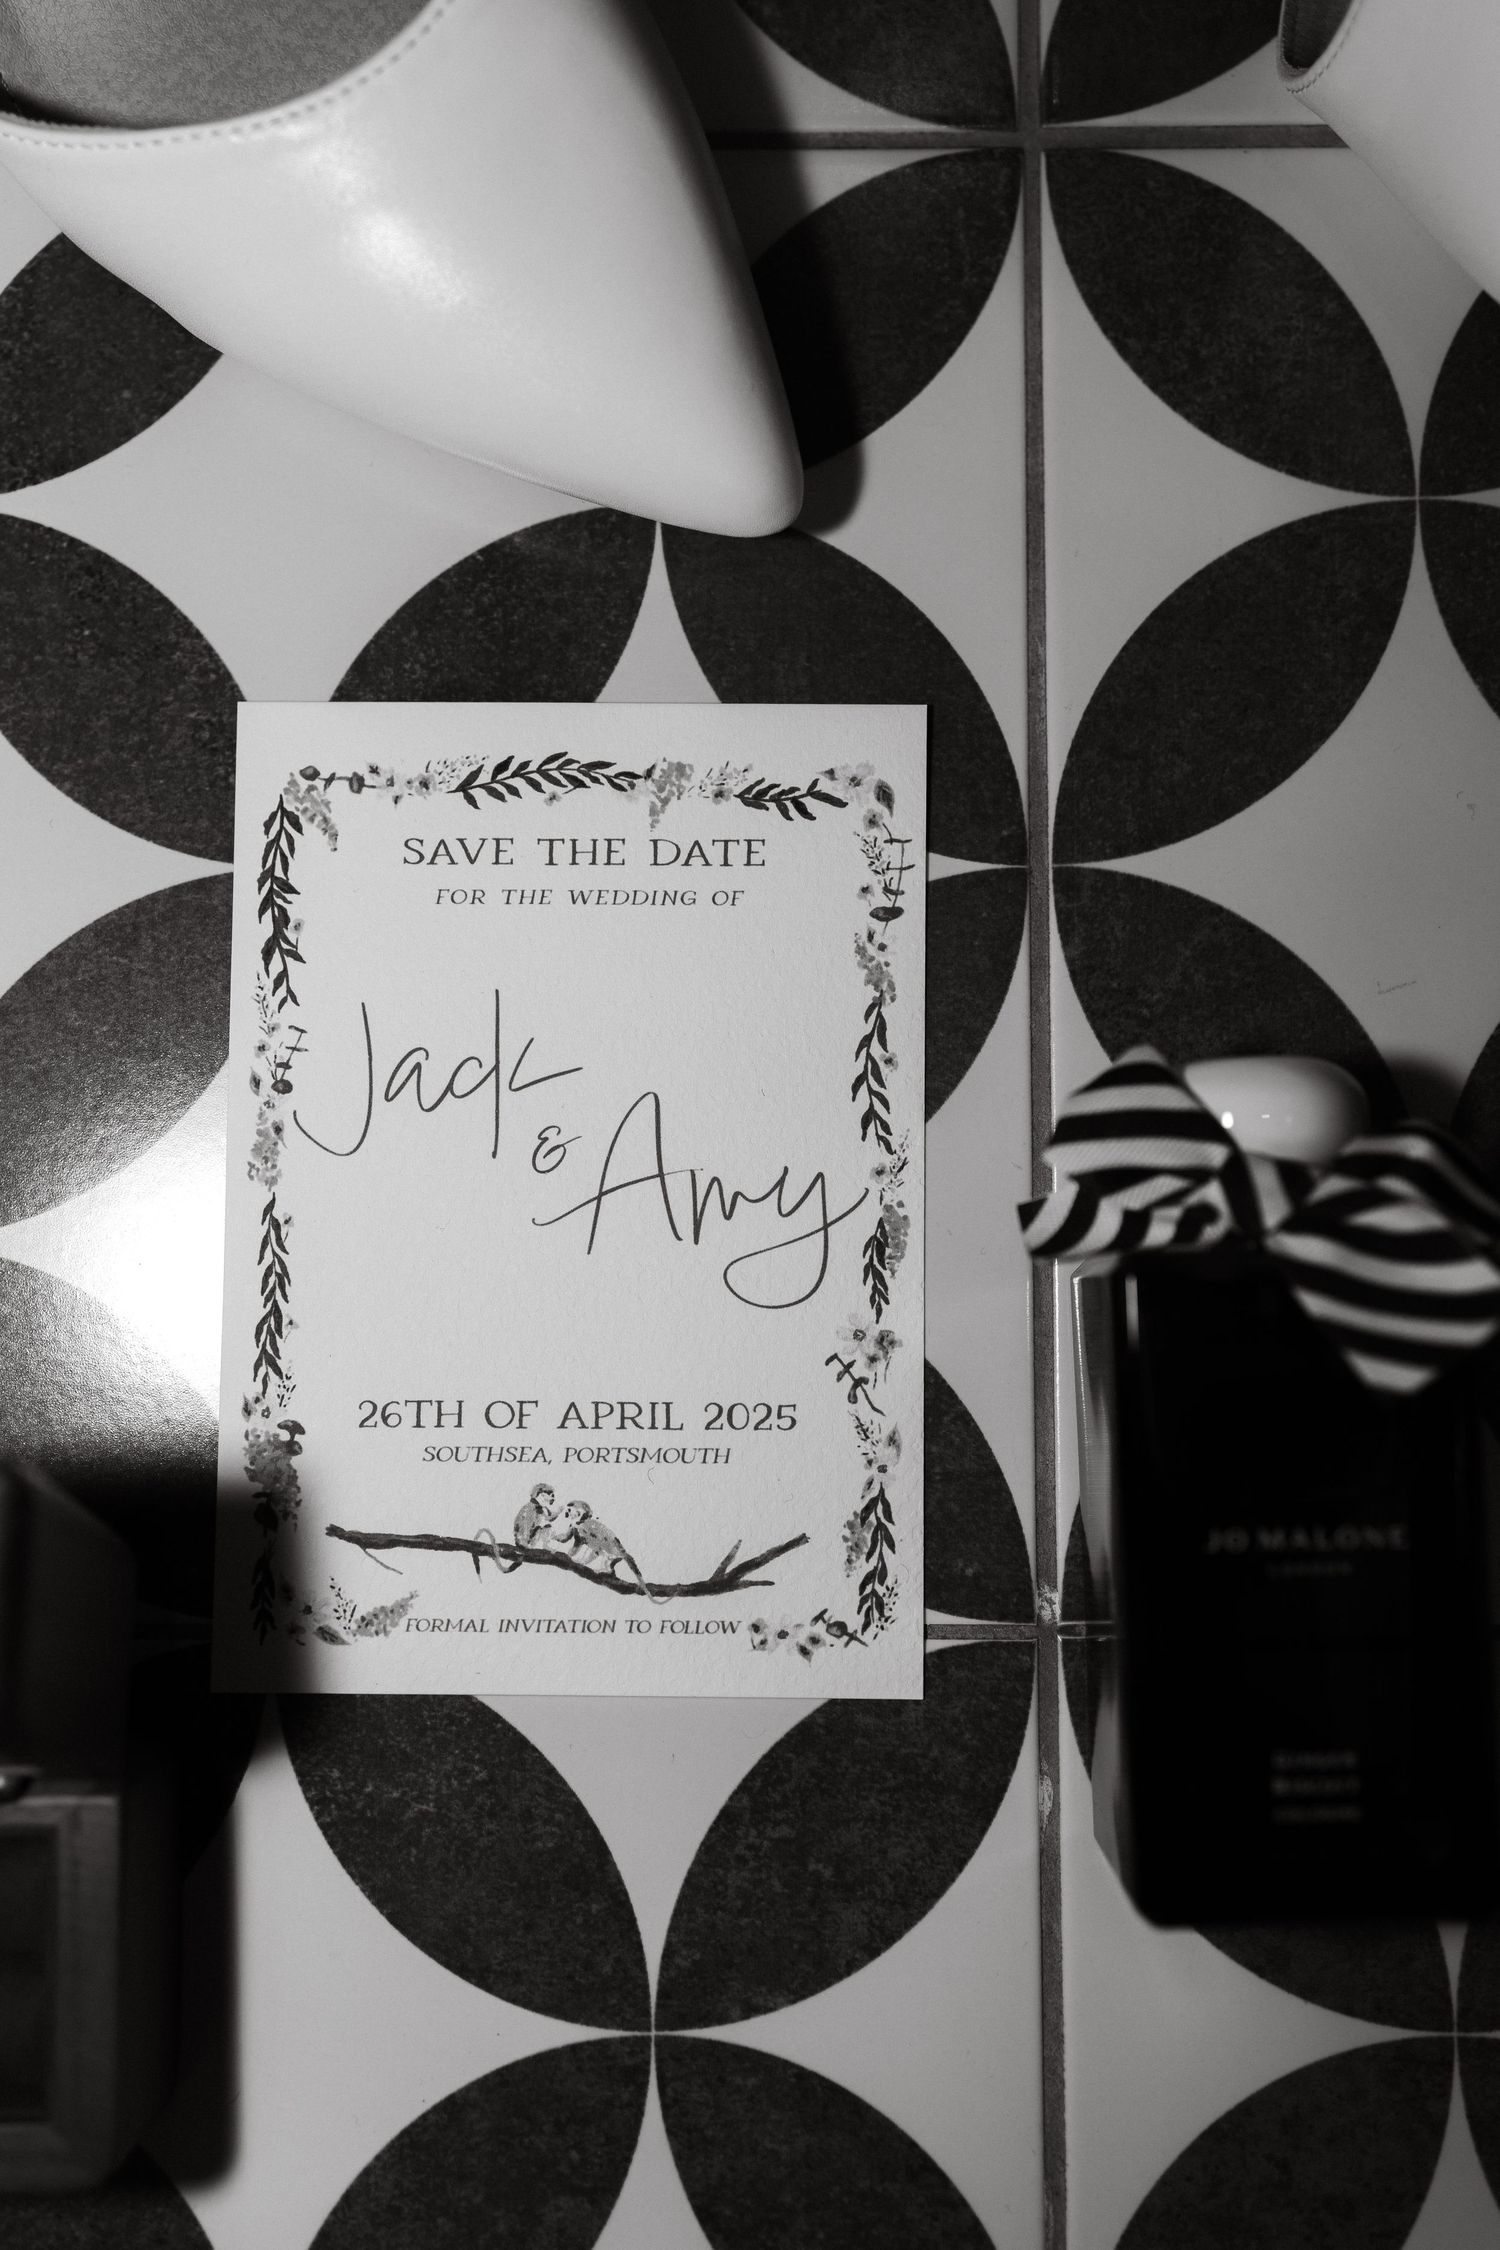 SAVE THE DATE
FOR THE WEDDING OF
Jack
& Amy
26TH OF APRIL 2025
SOUTHSEA, PORTSMOUTH
FORMAL INVITATION TO FOLLOW
JO MALONE
LONDON
GINGER
BISCUIT
COLOGNE